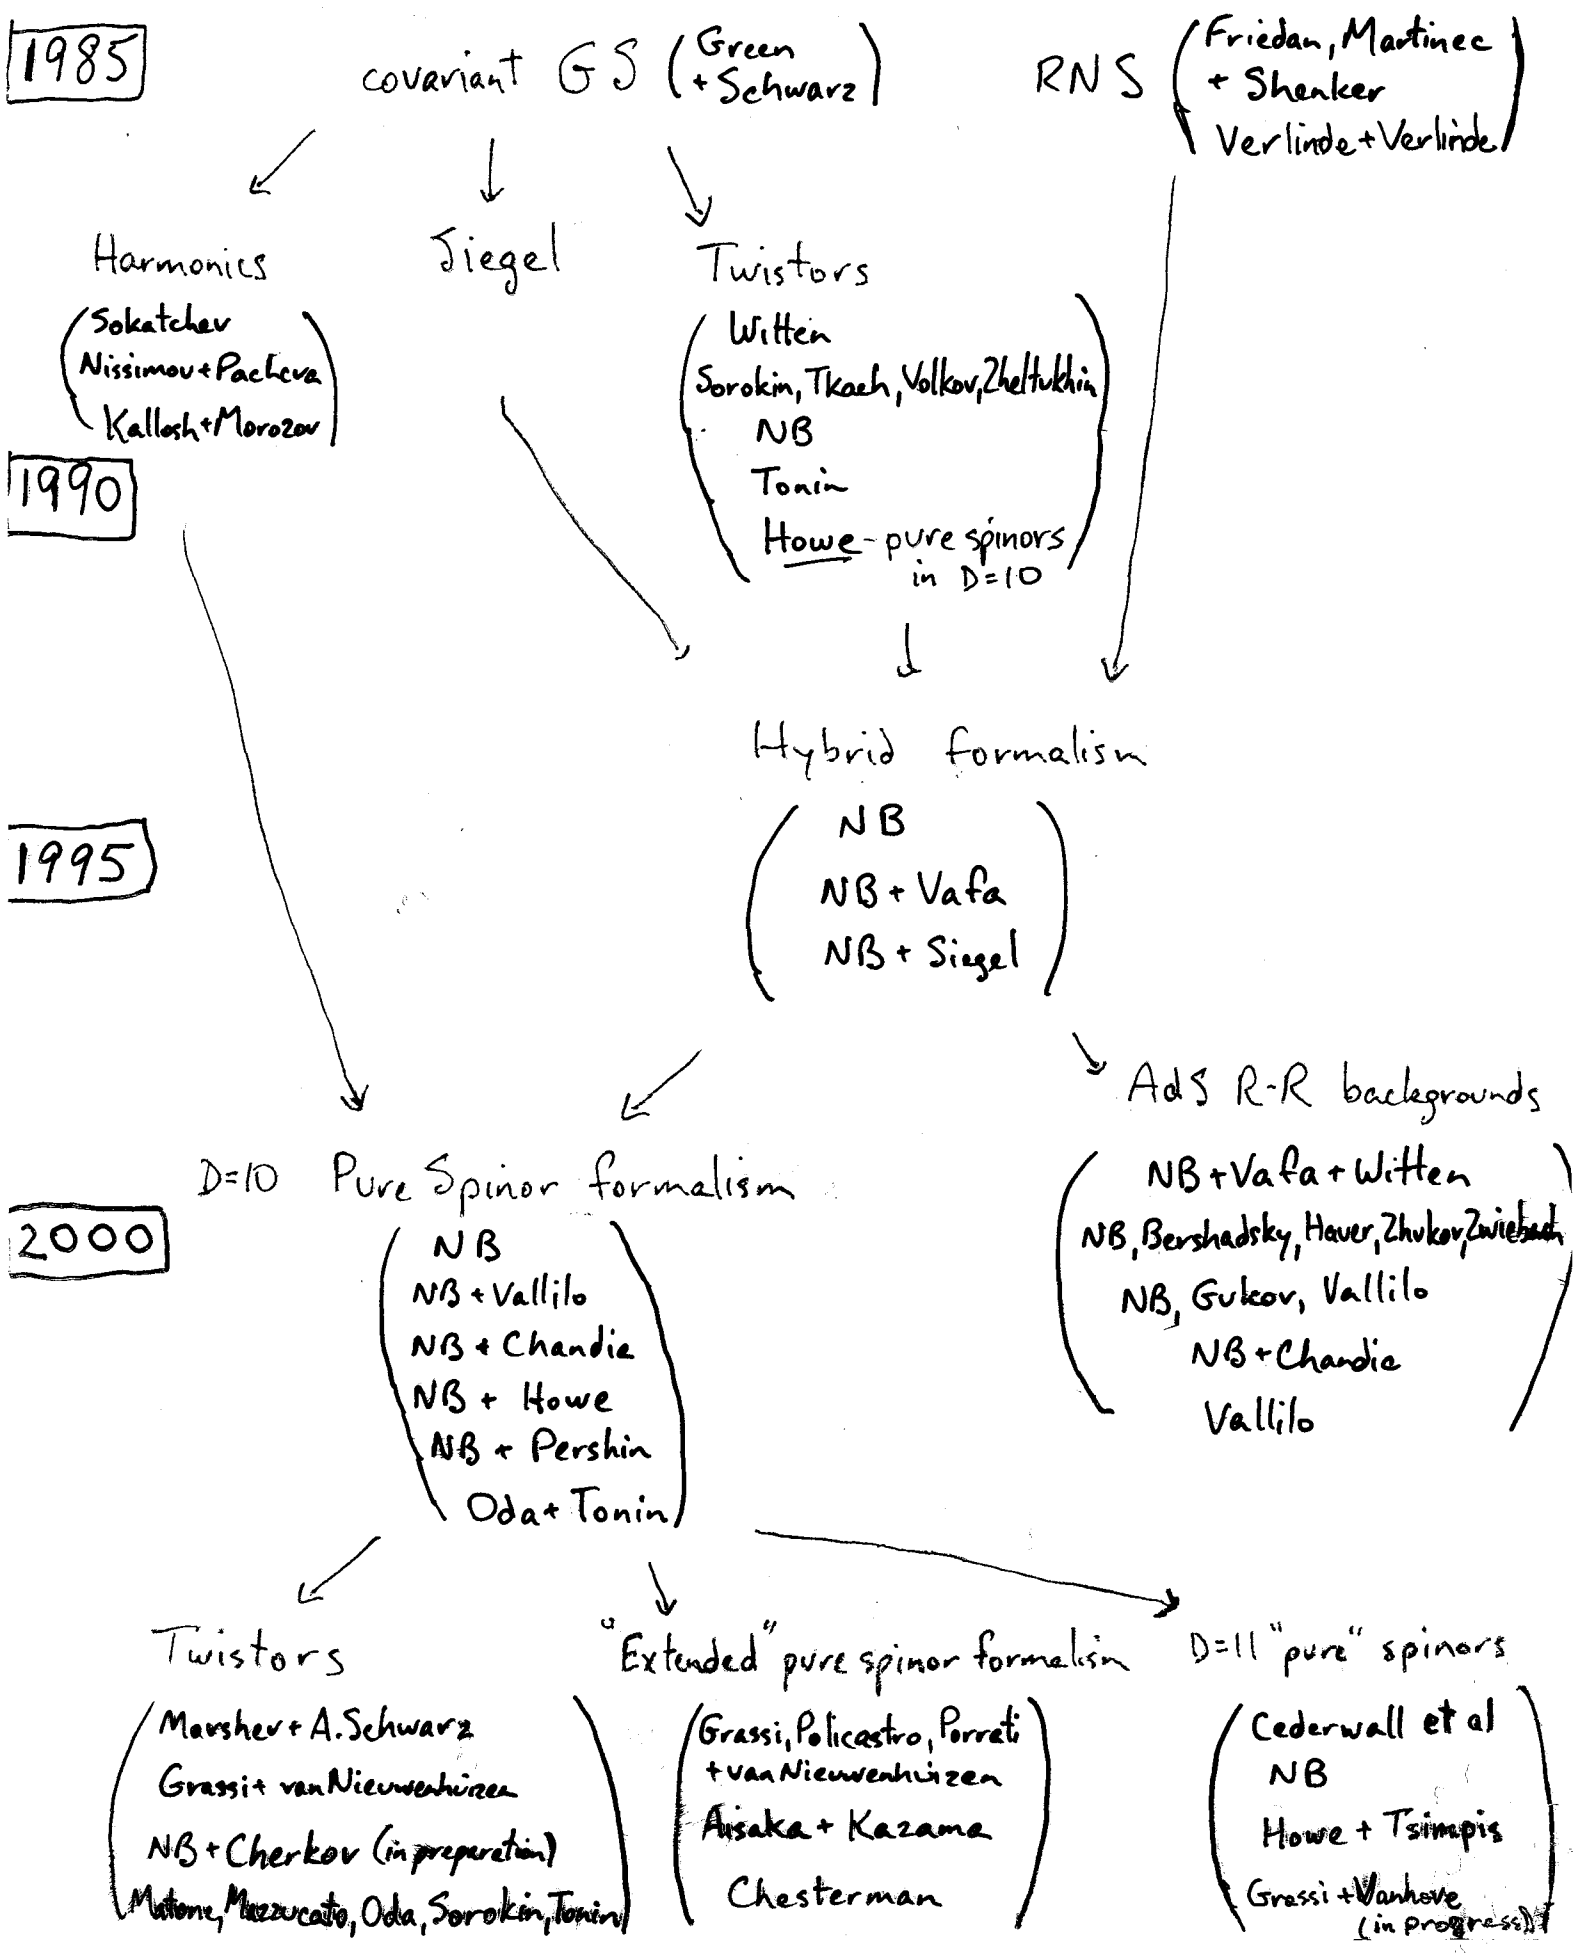 1985
covariant GS (Green
+ Schwarz)
RNS (Friedan, Martinec
+ Shenker
Verlinde + Verlinde)
Harmonics
(Sokatchev
Nissimov + Pacheva
Kallosh + Morozov)
Siegel
Twistors
(Witten
Sorokin, Tkach, Volkov, Zheltukhin
NB
Tonin
Howe - pure spinors
in D=10)
1990
Hybrid formalism
(NB
NB + Vafa
NB + Siegel)
1995
AdS R-R backgrounds
(NB + Vafa + Witten
NB, Bershadsky, Hauer, Zhukov, Zwiebach
NB, Gukov, Vallilo
NB + Chandia
Vallilo)
D=10 Pure Spinor formalism
2000
(NB
NB + Vallilo
NB + Chandia
NB + Howe
NB + Pershin
Oda + Tonin)
Twistors
(Marshev + A. Schwarz
Grassi + van Nieuwenhuizen
NB + Cherkov (in preparation)
Matone, Mazzucato, Oda, Sorokin, Tonin)
"Extended" pure spinor formalism
(Grassi, Policastro, Porrati
+ van Nieuwenhuizen
Aisaka + Kazama
Chesterman)
D=11 "pure" spinors
(Cederwall et al
NB
Howe + Tsimpis
Grassi + Vanhove
(in progress))